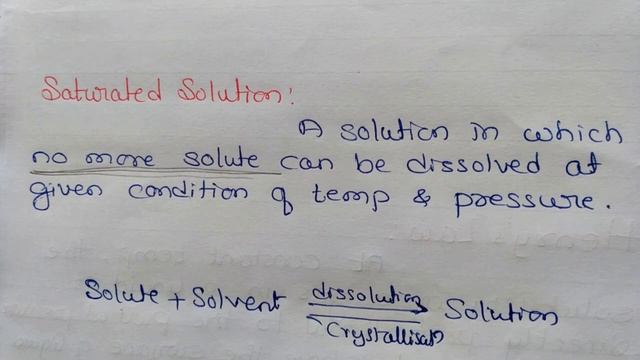 Saturated Solution:
A solution in which
no more solute can be dissolved at
given condition of temp & pressure.
Solute + Solvent dissolution Solution
Crystallisan